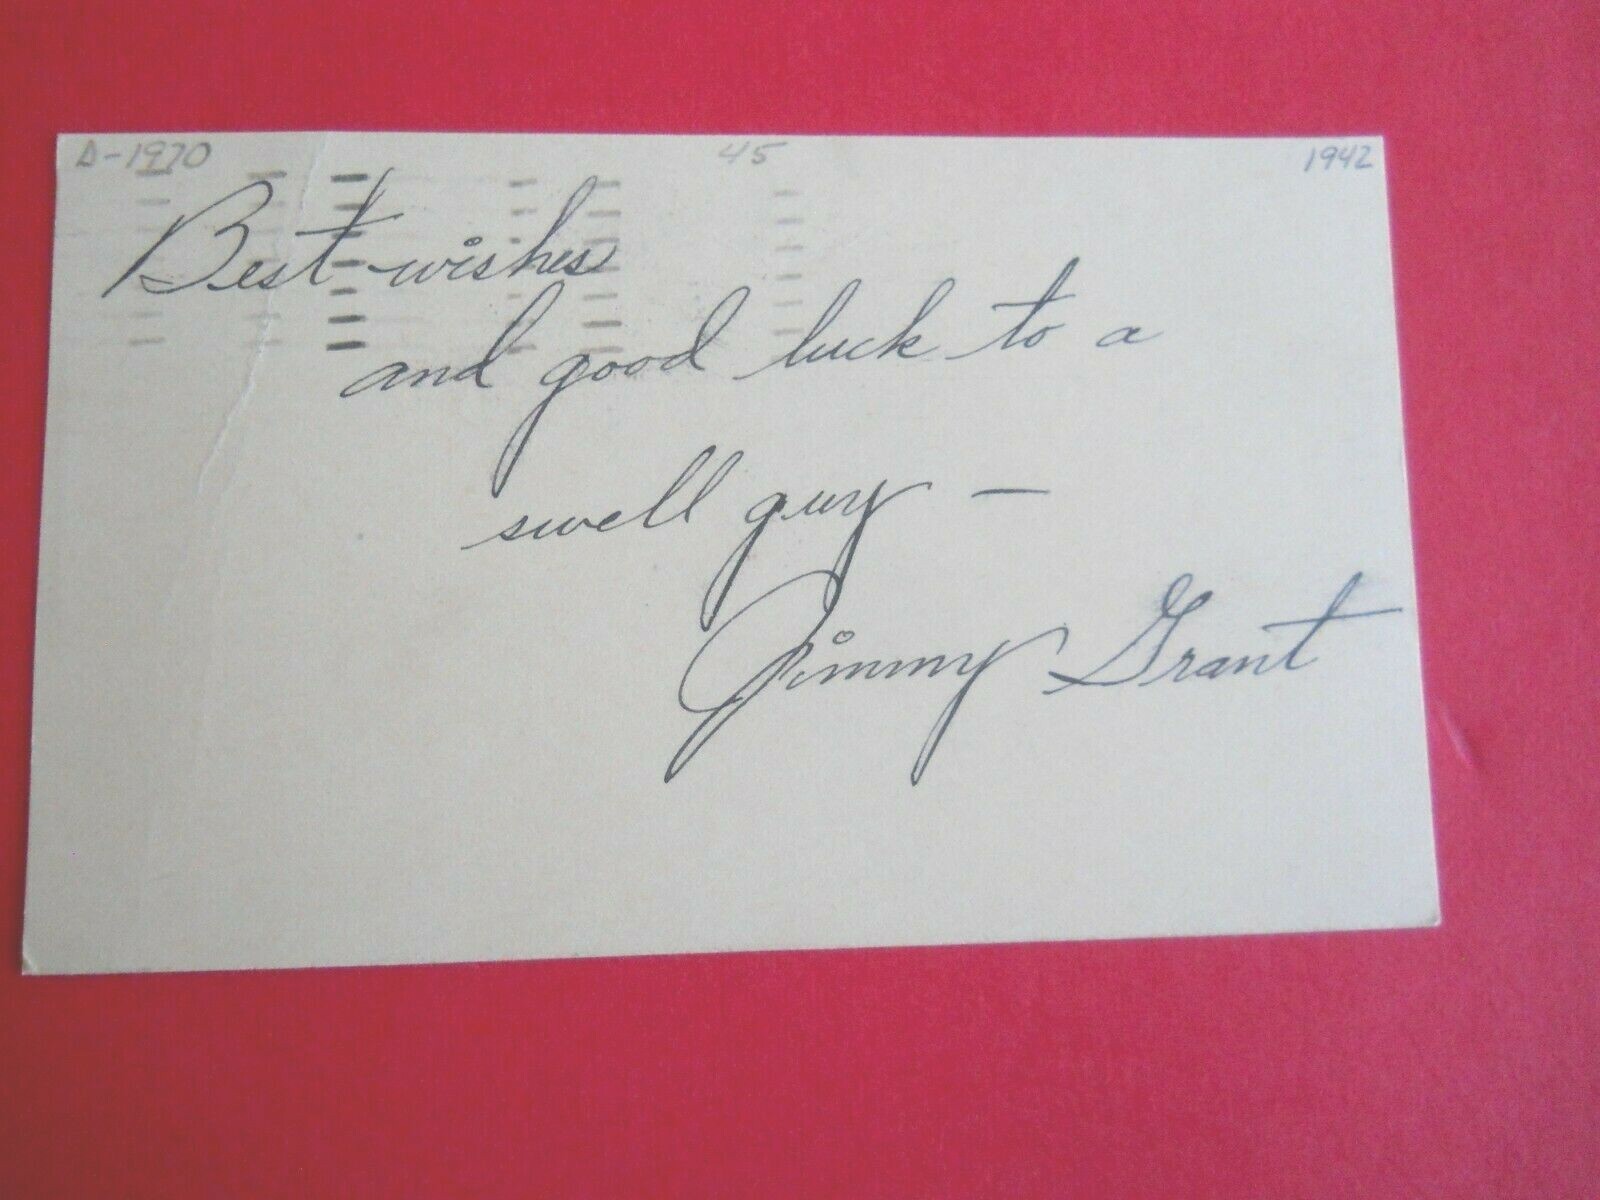 D-1970 45 1942
Best wishes
and good luck to a
swell guy —
Jimmy Grant